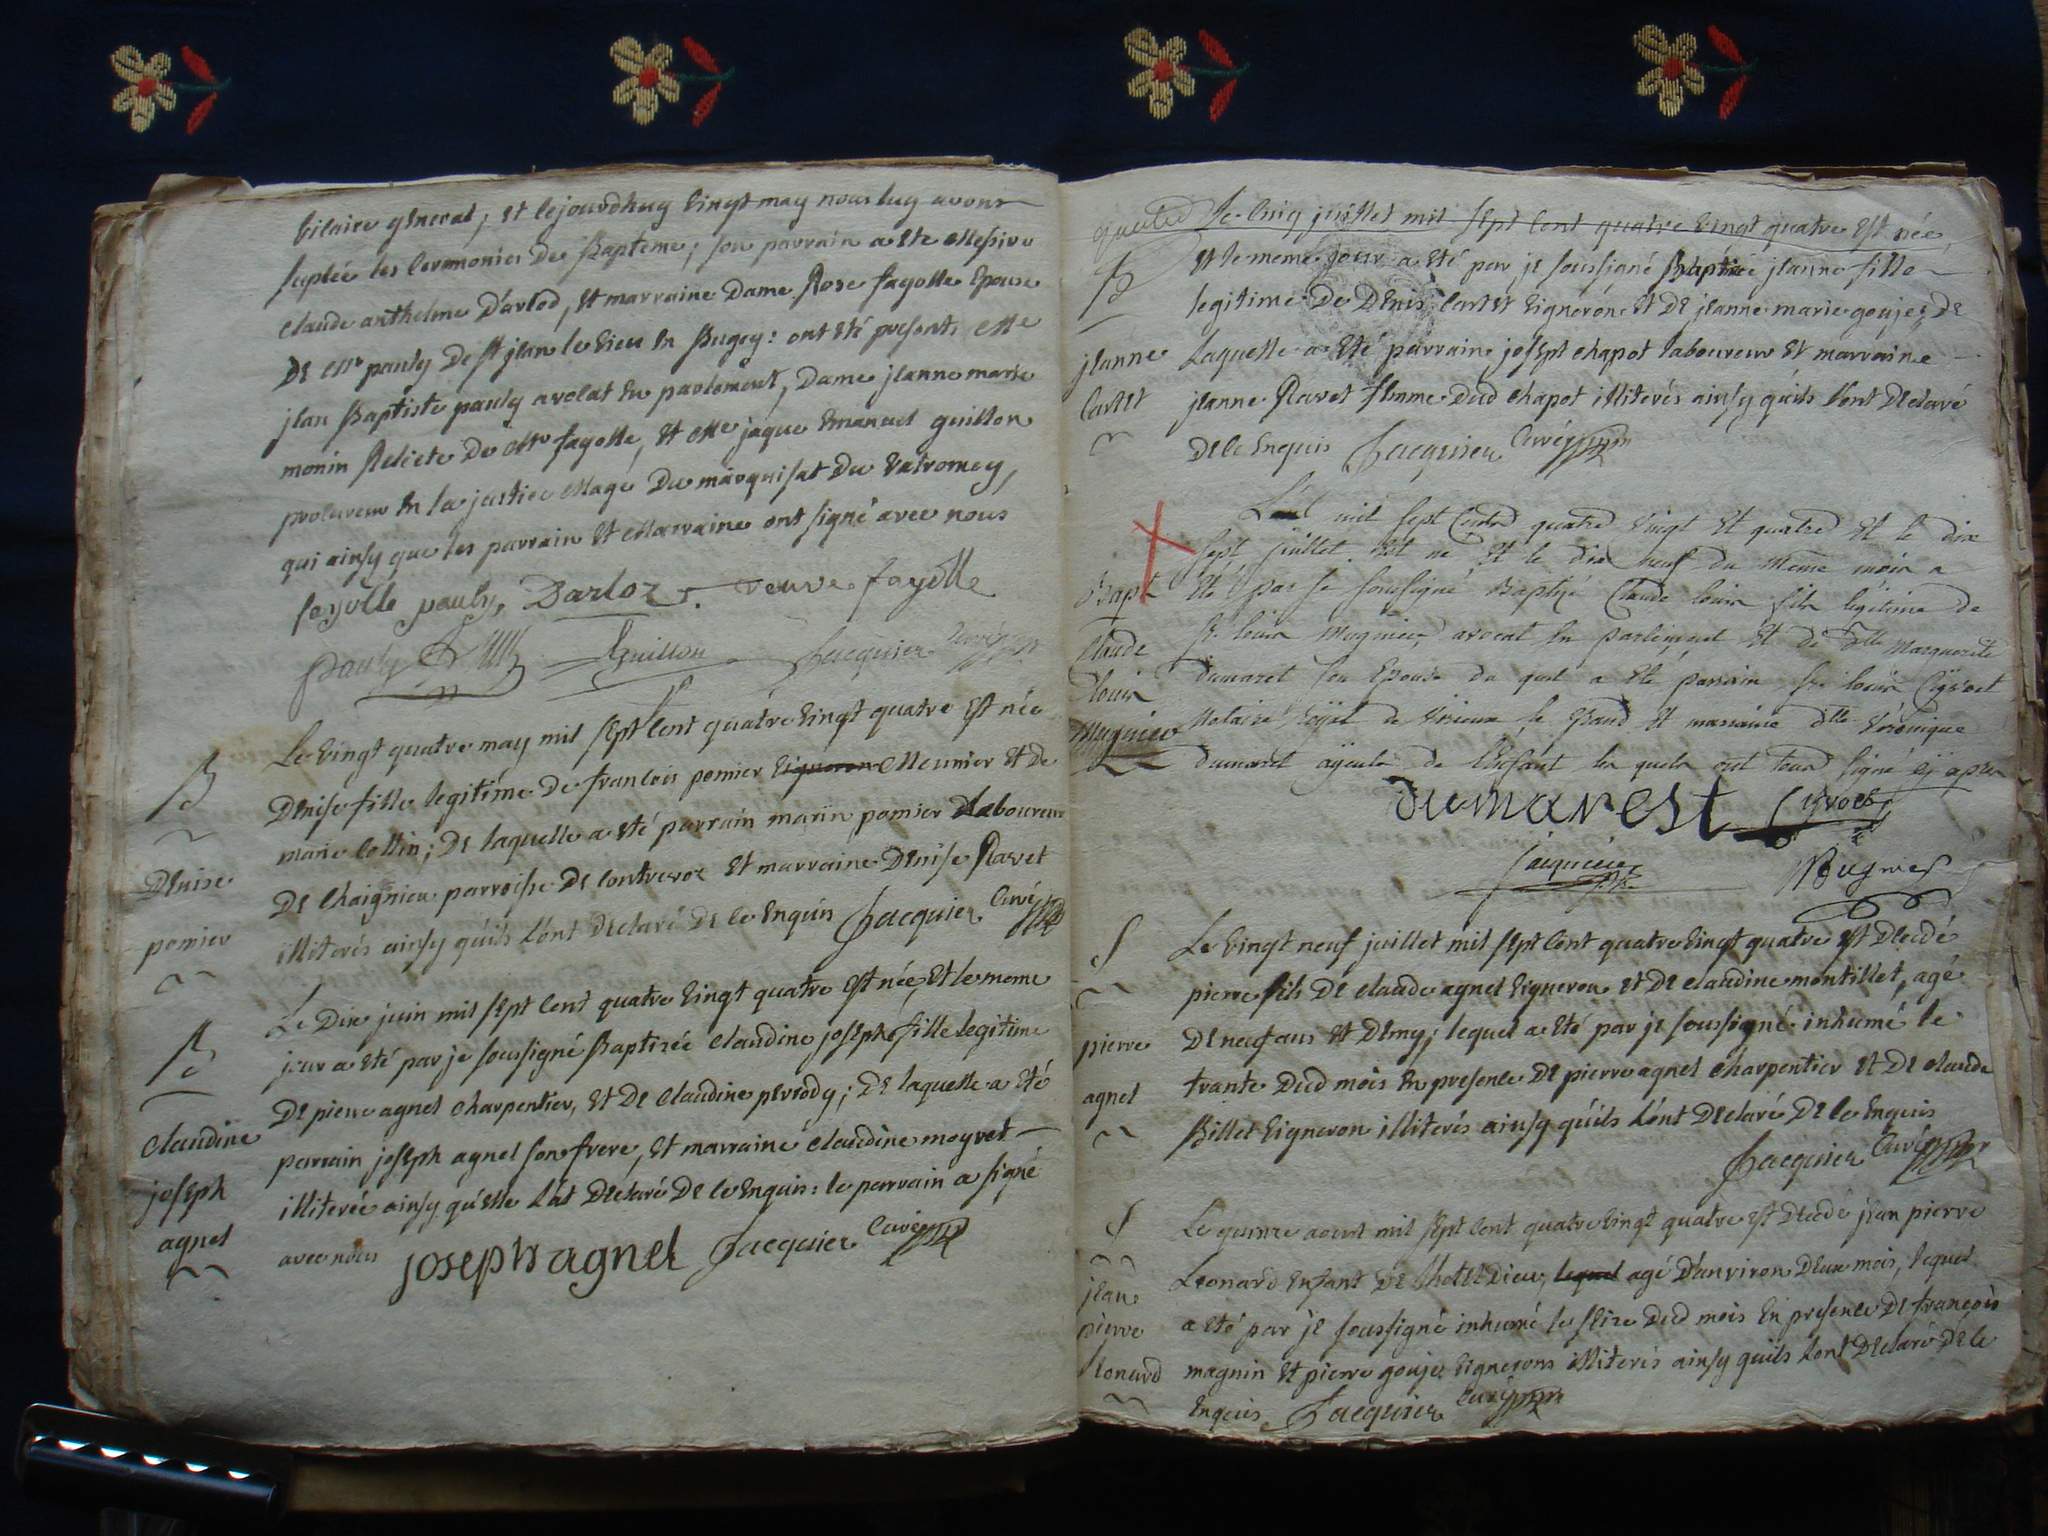 bilaire general, et cejourdhuy vingt may nous luy avons
suplée les ceremonies de Bapteme; son parrain a ete Messire
claude anthelme Darlod, et marraine Dame Rose fayolle Epouse
De Mr pauly De st jean le vieu en Bugey: ont été presents Me
jean Baptiste pauly avocat en parlement, Dame jeanne marie
monin Relicte de Mr fayolle, et Me jaque Emanuel guillon
procureur en la justice Mage Du marquisat du valromey,
qui ainsy que les parrain et Marraine ont signé avec nous
feyolle pauly, Darloz. veuve fayolle
pauly Guillon Jacquier Curé
B
Le vingt quatre may mil sept cent quatre vingt quatre est née
Denise fille legitime de francois pomier vigneron Meunier et de
marie Collin; De laquelle a été parrain marin pomier laboureur
De Chaignieu parroisse De contrevoz et marraine Denise Ravet
illiterés ainsy quils l'ont Declaré De ce Enquis Jacquier Curé
Denise
pomier
B
Le Dix juin mil sept cent quatre vingt quatre est née, et le meme
jour a été par je soussigné Baptisée claudine joseph fille legitime
De pierre agnel charpentier, et De claudine perrody; De laquelle a été
parrain joseph agnel son frere, et marraine claudine moyret
illiterée ainsy qu'elle l'at Declaré De ce Enquis: le parrain a signé
avec nous joseph agnel Jacquier Curé
claudine
joseph
agnel
Le cinq juillet mil sept cent quatre vingt quatre est née,
et le meme jour a été par je soussigné Baptisée jeanne fille
legitime De Denis Cartet vigneron et De jeanne marie goujet; De
laquelle a été parrain joseph chapot laboureur et marraine
jeanne Ravet femme Dud chapot illiterés ainsy qu'ils l'ont Declaré
De ce Enquis Jacquier Curé
B
jeanne
Cartet
L'an mil sept cents quatre vingt et quatre et le dix
sept juillet est né et le dix neuf du même mois a
été par je soussigné Baptizé Claude louis fils légitime de
Sr louis Mugnier avocat en parlement et de dlle Marguerite
dumarest son Epouse du quel a été parrain Sr louis Cyvoct
Notaire Royal de virieux le grand et marraine dlle véronique
dumarest ayeule de l'Enfant les quels ont tous signé cy après
Bapt
Claude
louis
Mugnier
dumarest Cyvoct
Jacquier Mugnier
S
Le vingt neuf juillet mil sept cent quatre vingt quatre est Decedé
pierre fils De claude agnel vigneron et De claudine montillet, agé
De neuf ans et Demy; lequel a été par je soussigné inhumé le
trante Dud mois En presence De pierre agnel charpentier et De claude
Billet vigneron illiterés ainsy qu'ils l'ont Declaré De ce Enquis
Jacquier Curé
pierre
agnel
S
Le quinze aout mil sept cent quatre vingt quatre est Decedé jean pierre
Leonard Enfant De l'hotel Dieu, lequel agé D'anviron Deux mois, lequel
a été par je soussigné inhumé le seize Dud mois En presence De françois
magnin et pierre goujet vignerons illiterés ainsy quils l'ont Declaré De ce
Enquis Jacquier Curé
jean
pierre
Leonard